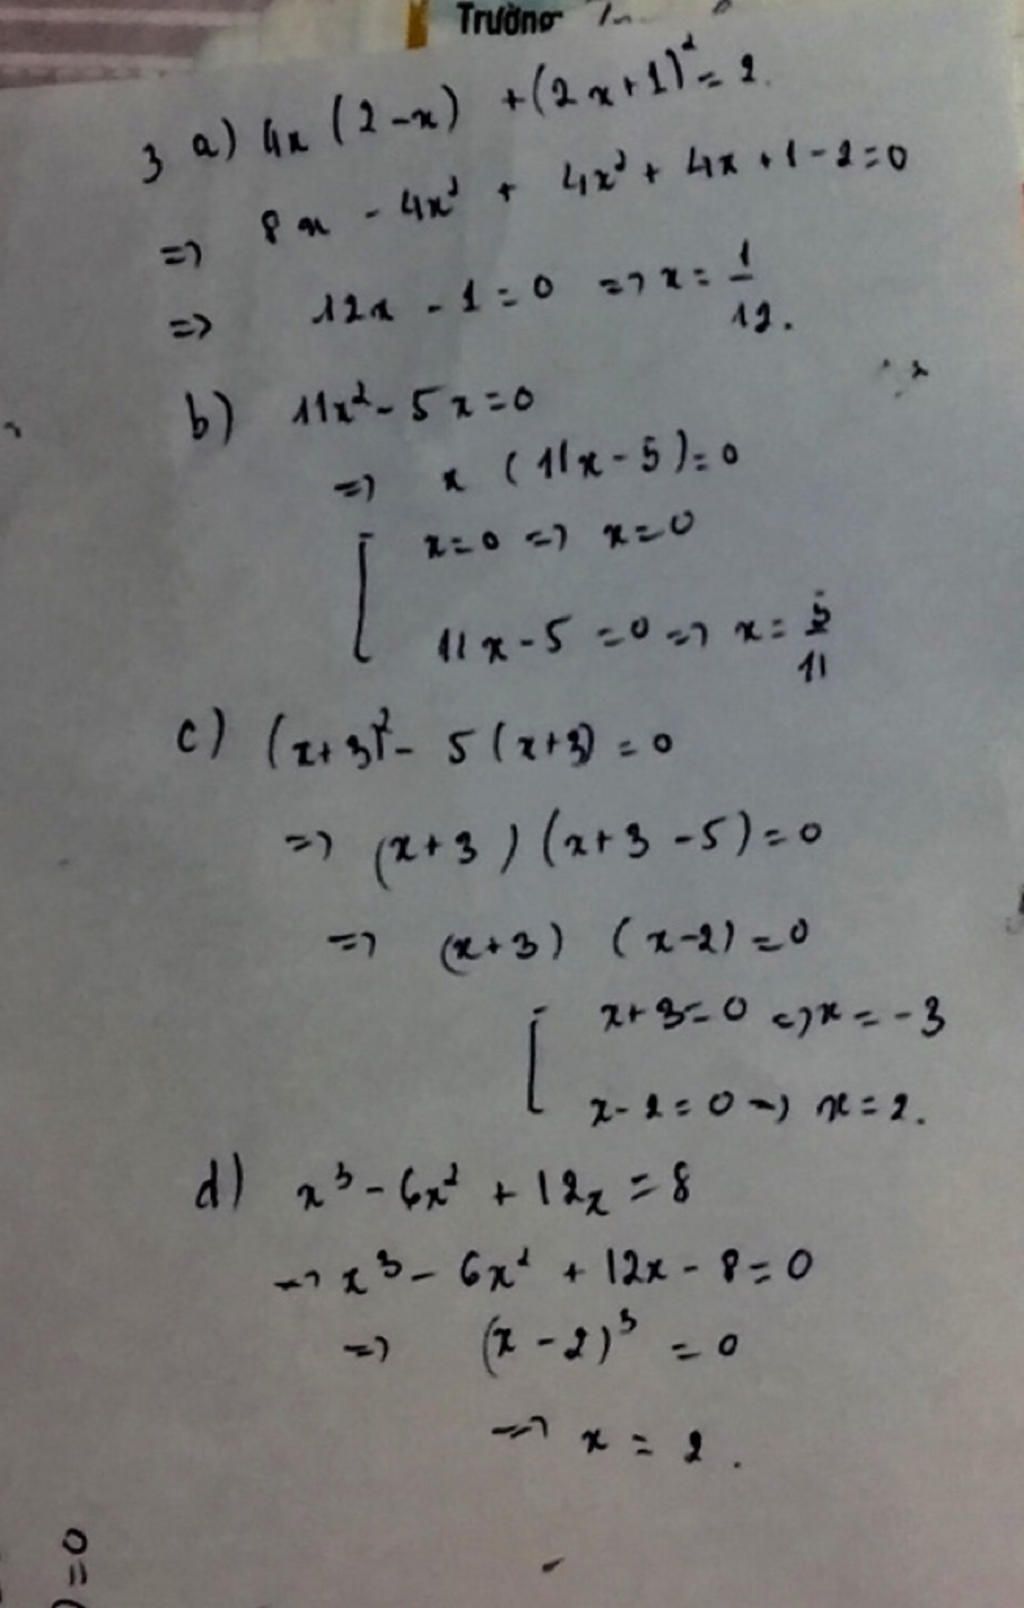 Trường
3 a) 4x (2-x) + (2x+1)² = 2.
=> 8x - 4x² + 4x² + 4x + 1 - 2 = 0
=> 12x - 1 = 0 => x = 1/12.
b) 11x² - 5x = 0
=> x (11x - 5) = 0
[ x = 0 => x = 0
11x - 5 = 0 => x = 5/11
c) (x+3)² - 5(x+3) = 0
=> (x+3) (x+3-5) = 0
=> (x+3) (x-2) = 0
[ x+3 = 0 => x = -3
x-2 = 0 => x = 2.
d) x³ - 6x² + 12x = 8
=> x³ - 6x² + 12x - 8 = 0
=> (x-2)³ = 0
=> x = 2.
) = 0